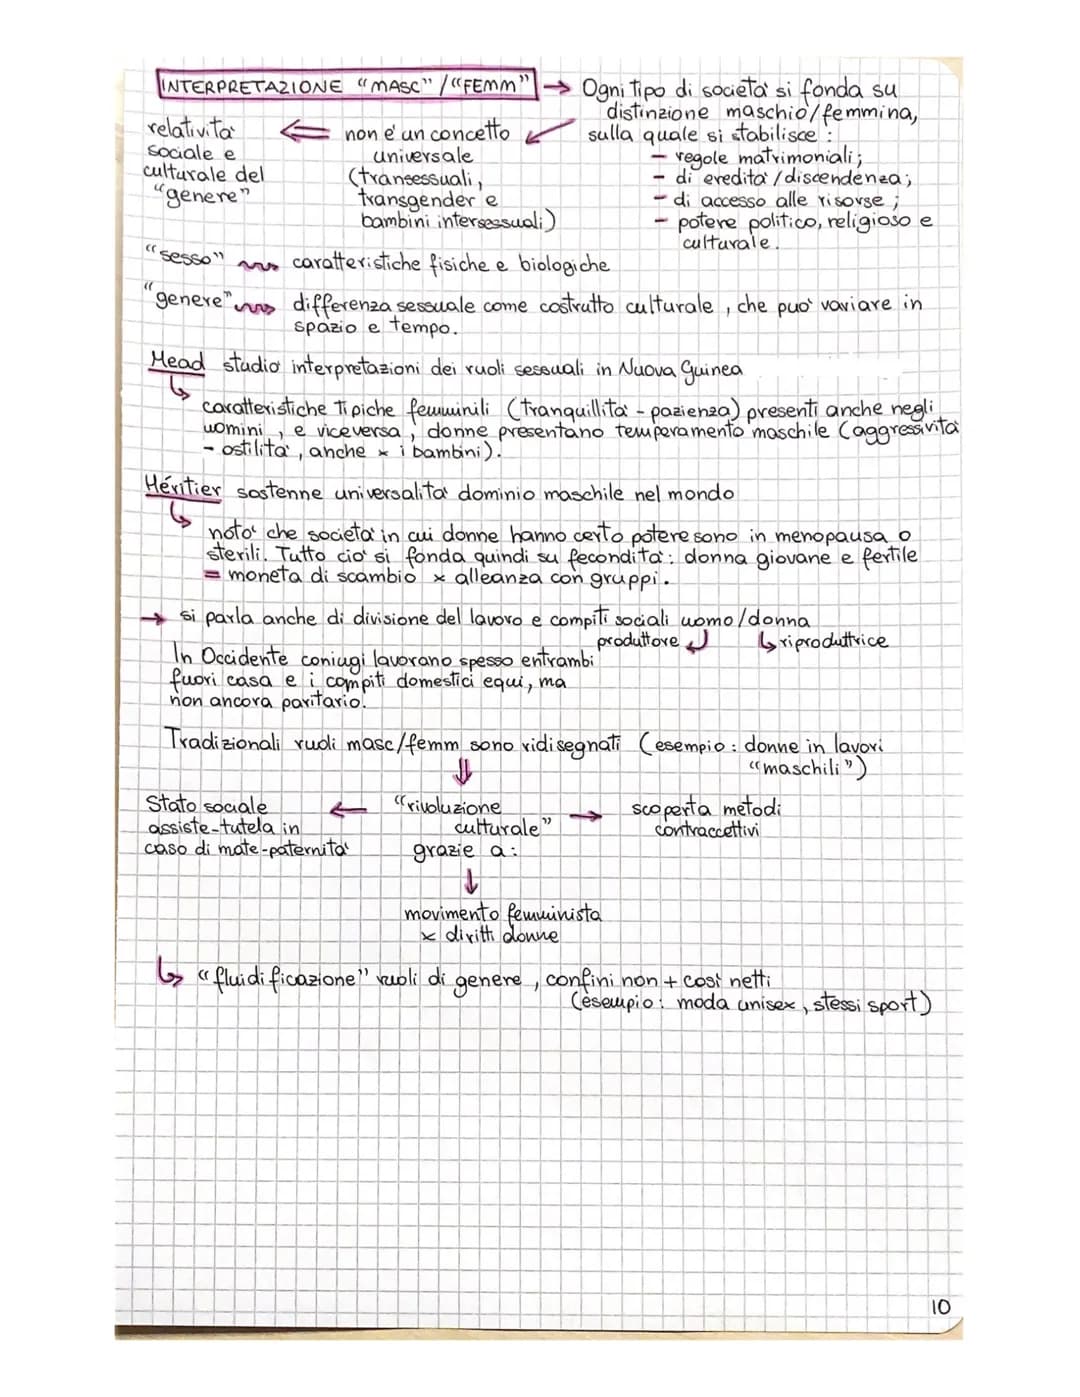 INTERPRETAZIONE "MASC" / "FEMM" → Ogni tipo di società si fonda su
distinzione maschio/femmina,
sulla quale si stabilisce :
- regole matrimoniali;
- di eredità / discendenza;
- di accesso alle risorse ;
- potere politico, religioso e
culturale.
non è un concetto
universale
(transessuali,
transgender e
bambini intersessuali)
relatività
sociale e
culturale del
"genere"
"sesso" caratteristiche fisiche e biologiche
"genere" differenza sessuale come costrutto culturale , che può variare in
spazio e tempo.
Mead studio interpretazioni dei ruoli sessuali in Nuova Guinea
caratteristiche tipiche femminili (tranquillità - pazienza) presenti anche negli
uomini , e viceversa , donne presentano temperamento maschile (aggressività
- ostilità , anche x i bambini).
Héritier sostenne universalità dominio maschile nel mondo
notò che società in cui donne hanno certo potere sono in menopausa o
sterili. Tutto ciò si fonda quindi su fecondità : donna giovane e fertile
= moneta di scambio x alleanza con gruppi.
→ si parla anche di divisione del lavoro e compiti sociali uomo/donna
produttore ↲ ↳ riproduttrice
In Occidente coniugi lavorano spesso entrambi
fuori casa e i compiti domestici equi, ma
non ancora paritario.
Tradizionali ruoli masc/femm sono ridisegnati (esempio : donne in lavori
"maschili")
⇓
Stato sociale
assiste-tutela in
caso di mate-paternità
← "rivoluzione
culturale" →
grazie a :
scoperta metodi
contraccettivi
↓
movimento femminista
x diritti donne
↳ "fluidificazione" ruoli di genere , confini non + così netti
(esempio : moda unisex , stessi sport)
10